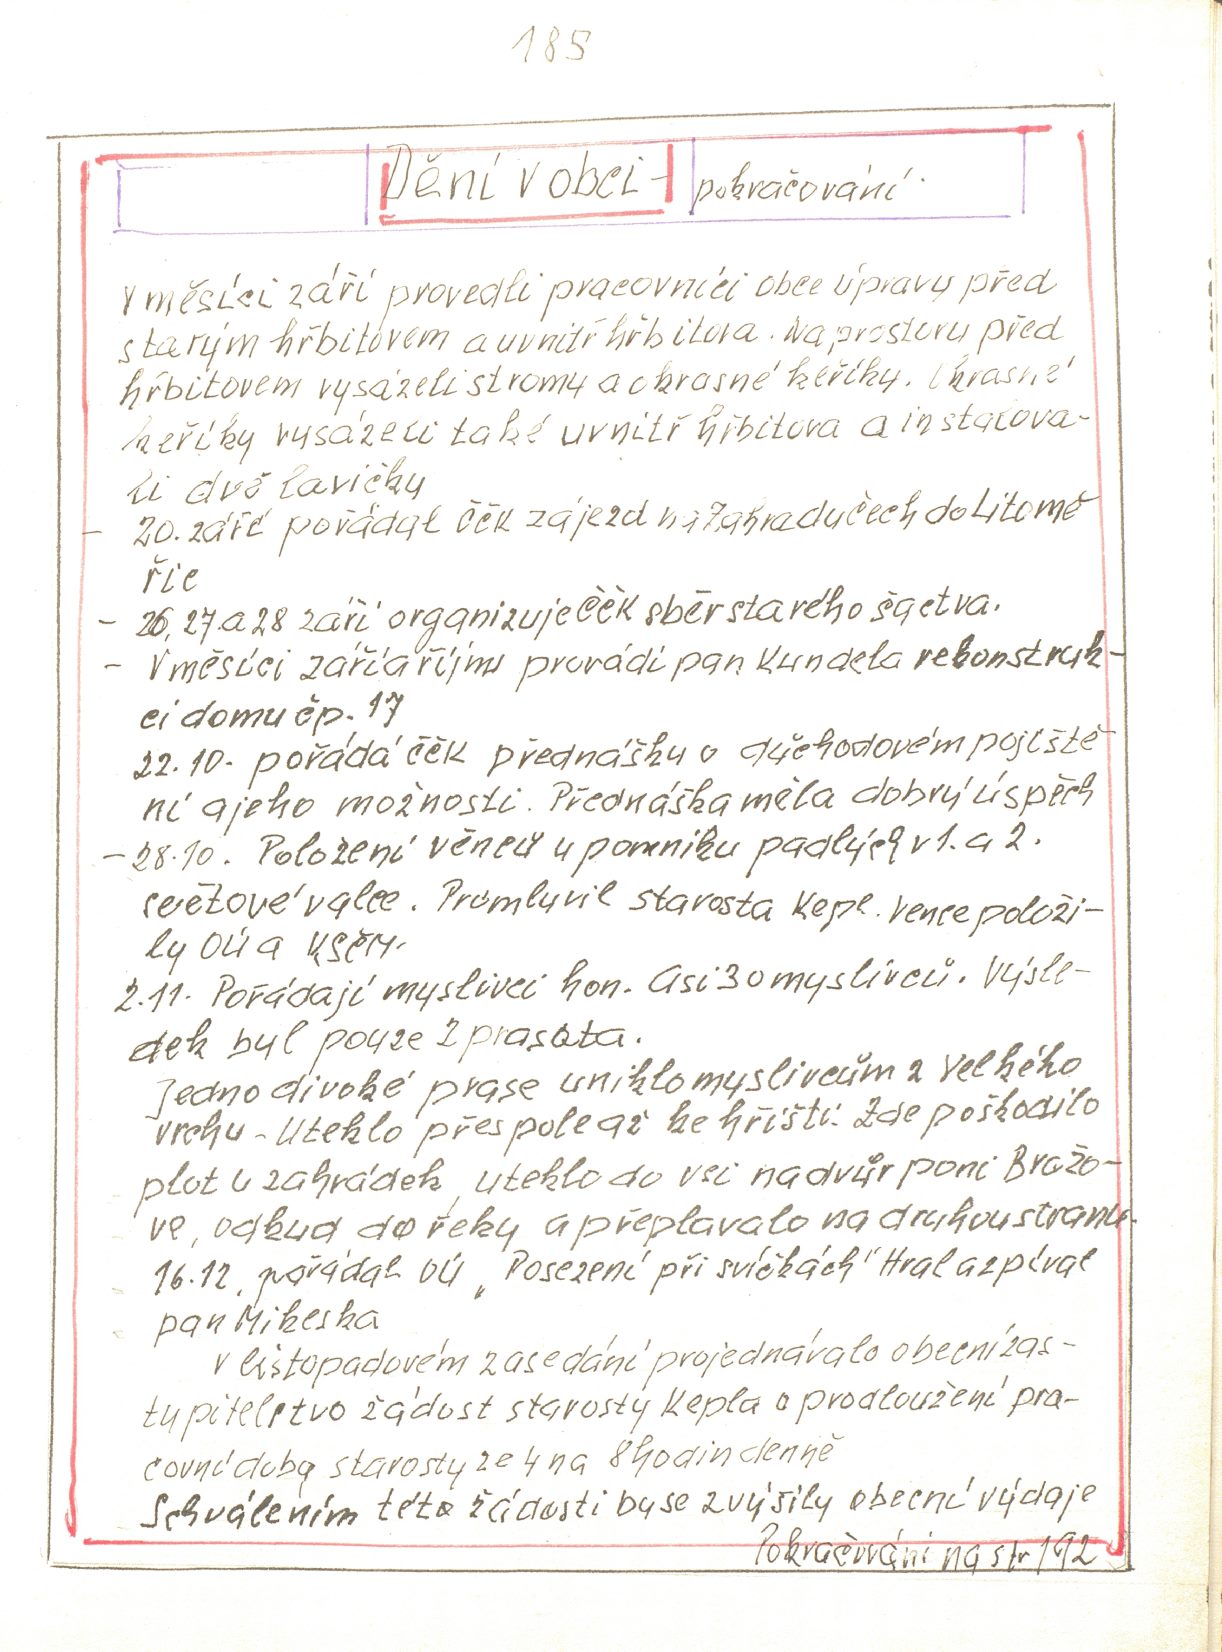 185
Dění v obci - pokračování.
V měsíci září provedli pracovníci obce úpravy před
starým hřbitovem a uvnitř hřbitova. Na prostoru před
hřbitovem vysázeli stromy a okrasné keříky. Okrasné
keříky vysázeli také uvnitř hřbitova a instalova-
li dvě lavičky
- 20. září pořádal ČČK zájezd na Zahradu Čech do Litomě
řic
- 26, 27 a 28 září organizuje ČČK sběr starého šactva.
- V měsíci září a říjnu provádí pan Kundela rekonstruk-
ci domu čp. 17
22.10. pořádá ČČK přednášku o důchodovém pojiště
ní a jeho možnosti. Přednáška měla dobrý úspěch
- 28.10. Položení věnců u pomníku padlých v 1. a 2.
světové válce. Promluvil starosta Kepl. Vence položi-
ly OÚ a KSČM.
2.11. Pořádají myslivci hon. Asi 30 myslivců. Výsle-
dek byl pouze 2 prasata.
Jedno divoké prase uniklo myslivcům z Velkého
vrchu - Uteklo přes pole až ke hřišti. Zde poškodilo
plot u zahrádek, uteklo do vsi na dvůr paní Brožo-
ve, odkud do řeky a přeplavalo na druhou stranu.
16.12. pořádal OÚ „Posezení při svíčkách" Hral a zpíval
pan Mikeska
V listopadovém zasedání projednávalo obecní zas-
tupitelstvo žádost starosty Kepla o prodloužení pra-
covní doby starosty ze 4 na 8 hodin denně
Schválením této žádosti by se zvýšily obecní výdaje
Pokračování na str 192